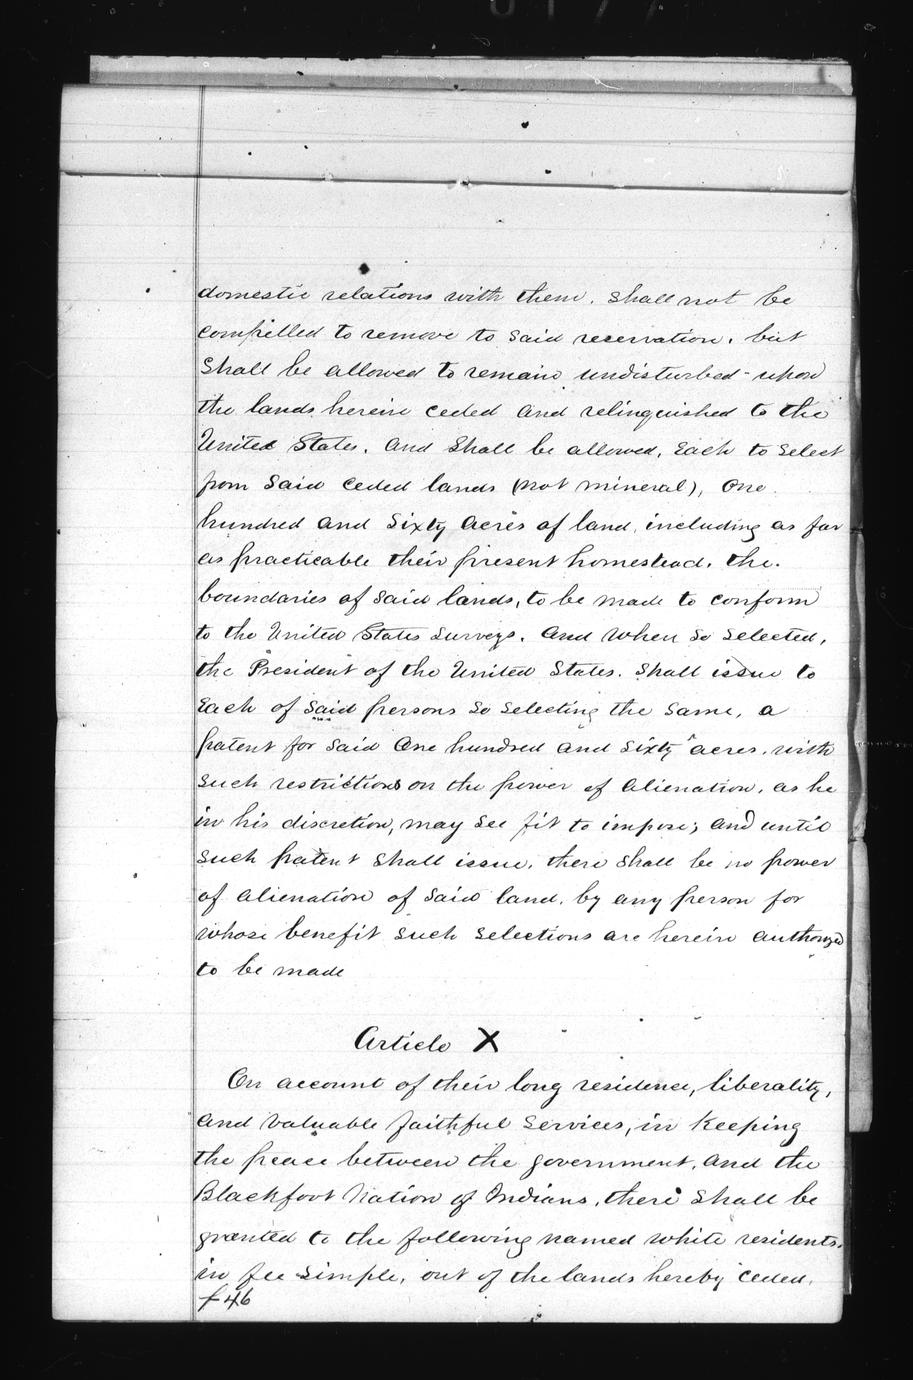 domestic relations with them, shall not be
compelled to remove to said reservation, but
shall be allowed to remain undisturbed upon
the lands herein ceded and relinquished to the
United States, and shall be allowed, each to select
from said ceded lands (not mineral), one
hundred and sixty acres of land, including as far
as practicable their present homestead, the
boundaries of said lands, to be made to conform
to the United States surveys, and when so selected,
the President of the United States, shall issue to
each of said persons so selecting the same, a
patent for said one hundred and sixty acres, with
such restrictions on the power of alienation, as he
in his discretion, may see fit to impose; and until
such patent shall issue, there shall be no power
of alienation of said land, by any person for
whose benefit such selections are herein authorized
to be made
Article X
On account of their long residence, liberality,
and valuable faithful services, in keeping
the peace between the government, and the
Blackfoot Nation of Indians, there shall be
granted to the following named white residents,
in fee simple, out of the lands hereby ceded,
f 46